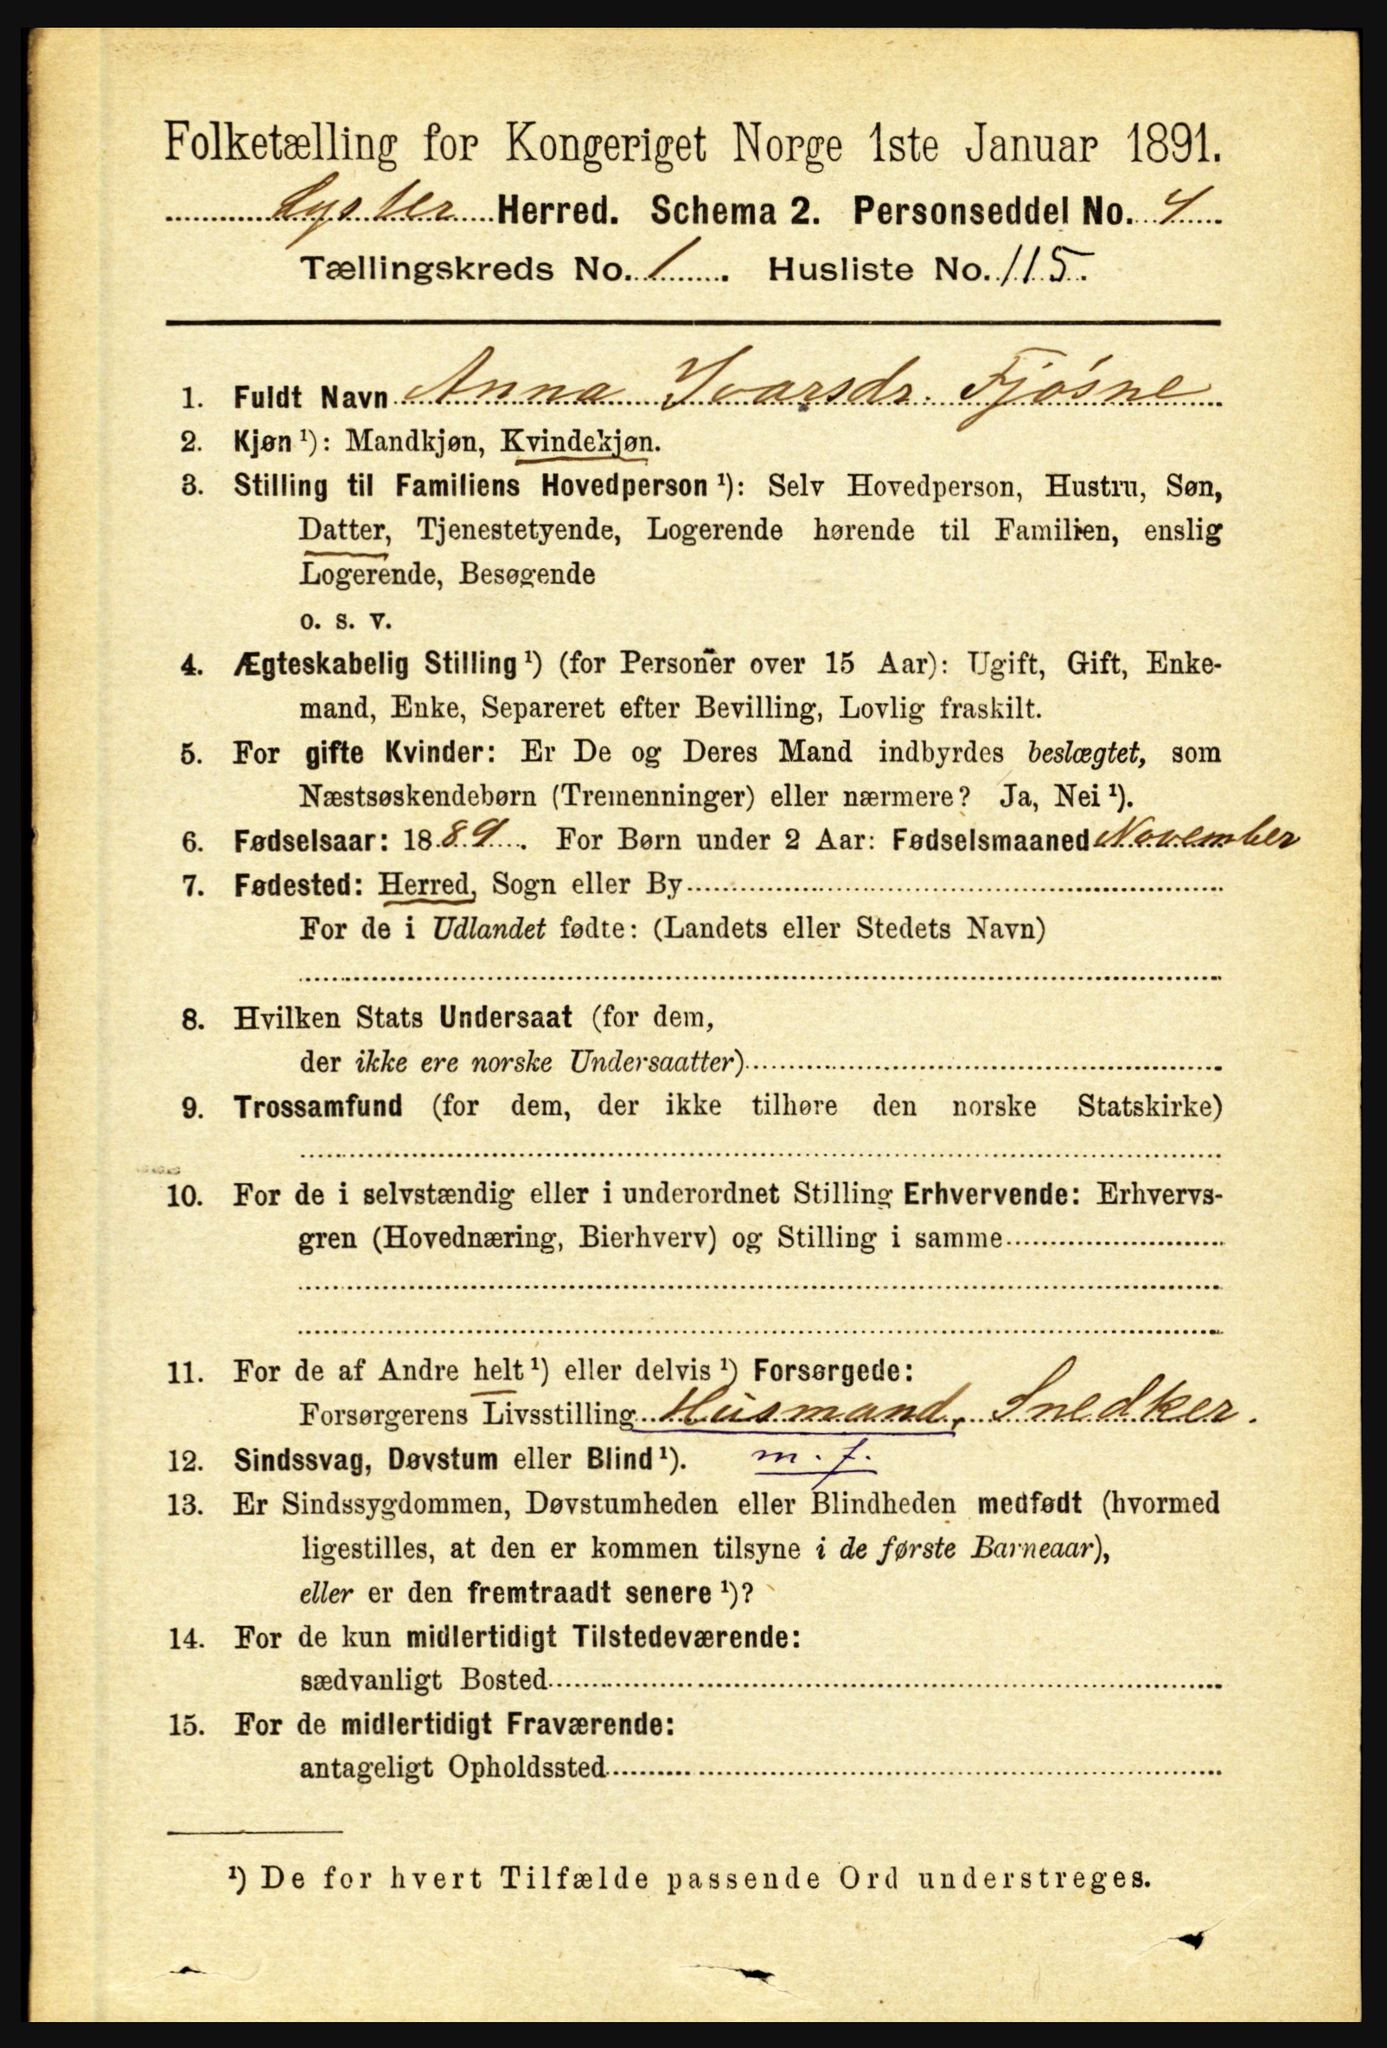 Folketælling for Kongeriget Norge 1ste Januar 1891.
Lyster Herred. Schema 2. Personseddel No. 4
Tællingskreds No. 1. Husliste No. 115.
1. Fuldt Navn Anna Ivarsdr. Fjøsne
2. Kjøn ¹): Mandkjøn, Kvindekjøn.
3. Stilling til Familiens Hovedperson ¹): Selv Hovedperson, Hustru, Søn,
Datter, Tjenestetyende, Logerende hørende til Familien, enslig
Logerende, Besøgende
o. s. v.
4. Ægteskabelig Stilling ¹) (for Personer over 15 Aar): Ugift, Gift, Enke-
mand, Enke, Separeret efter Bevilling, Lovlig fraskilt.
5. For gifte Kvinder: Er De og Deres Mand indbyrdes beslægtet, som
Næstsøskendebørn (Tremenninger) eller nærmere? Ja, Nei ¹).
6. Fødselsaar: 1889. For Børn under 2 Aar: Fødselsmaaned November
7. Fødested: Herred, Sogn eller By
For de i Udlandet fødte: (Landets eller Stedets Navn)
8. Hvilken Stats Undersaat (for dem,
der ikke ere norske Undersaatter)
9. Trossamfund (for dem, der ikke tilhøre den norske Statskirke)
10. For de i selvstændig eller i underordnet Stilling Erhvervende: Erhvervs-
gren (Hovednæring, Bierhverv) og Stilling i samme
11. For de af Andre helt ¹) eller delvis ¹) Forsørgede:
Forsørgerens Livsstilling Husmand, Snedker.
12. Sindssvag, Døvstum eller Blind ¹). m. j.
13. Er Sindssygdommen, Døvstumheden eller Blindheden medfødt (hvormed
ligestilles, at den er kommen tilsyne i de første Barneaar),
eller er den fremtraadt senere ¹)?
14. For de kun midlertidigt Tilstedeværende:
sædvanligt Bosted
15. For de midlertidigt Fraværende:
antageligt Opholdssted
¹) De for hvert Tilfælde passende Ord understreges.